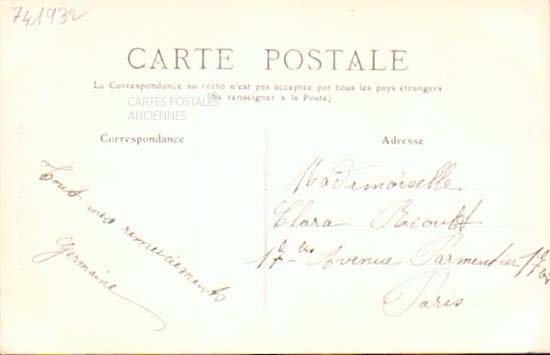 741932
CARTE POSTALE
La Correspondance au recto n'est pas acceptée par tous les pays étrangers
(Se renseigner à la Poste)
CARTES POSTALES
ANCIENNES
Correspondance
Adresse
Tous mes remerciements
Germaine
Mademoiselle
Clara
17 bis Avenue Parmentier
Paris